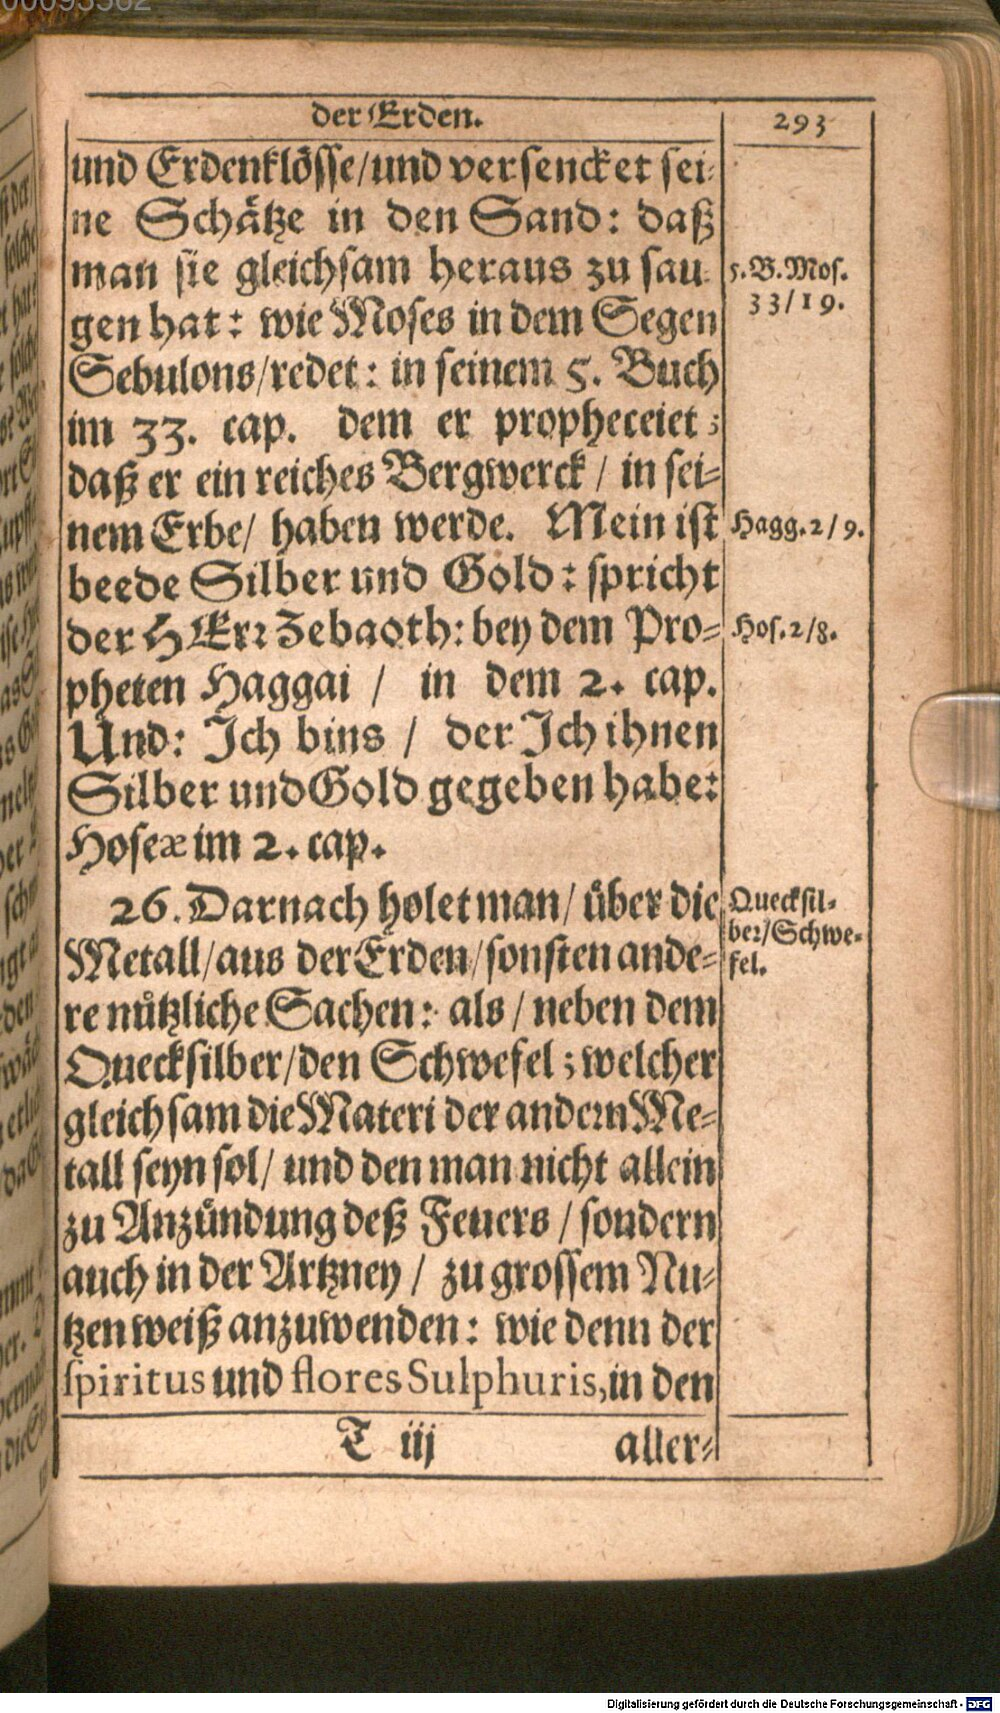 der Erden.
293
und Erdenklösse/und versencket sei-
ne Schätze in den Sand: daß
man sie gleichsam heraus zu sau-
gen hat: wie Moses in dem Segen
Sebulons/redet: in seinem 5. Buch
im 33. cap. dem er propheceiet;
daß er ein reiches Bergwerck / in sei-
nem Erbe/ haben werde. Mein ist
beede Silber und Gold: spricht
der HErr Zebaoth: bey dem Pro-
pheten Haggai / in dem 2. cap.
Und: Ich bins / der Ich ihnen
Silber und Gold gegeben habe:
Hoseæ im 2. cap.
26. Darnach holet man/ über die
Metall/aus der Erden/sonsten ande-
re nützliche Sachen: als / neben dem
Quecksilber/den Schwefel; welcher
gleichsam die Materi der andern Me-
tall seyn sol/ und den man nicht allein
zu Anzündung deß Feuers / sondern
auch in der Artzney / zu grossem Nu-
tzen weiß anzuwenden: wie denn der
spiritus und flores Sulphuris, in den
T iij
aller-
5. B. Mos.
33/19.
Hagg. 2/9.
Hos. 2/8.
Quecksil-
ber/Schwe-
fel.
Digitalisierung gefördert durch die Deutsche Forschungsgemeinschaft - DFG